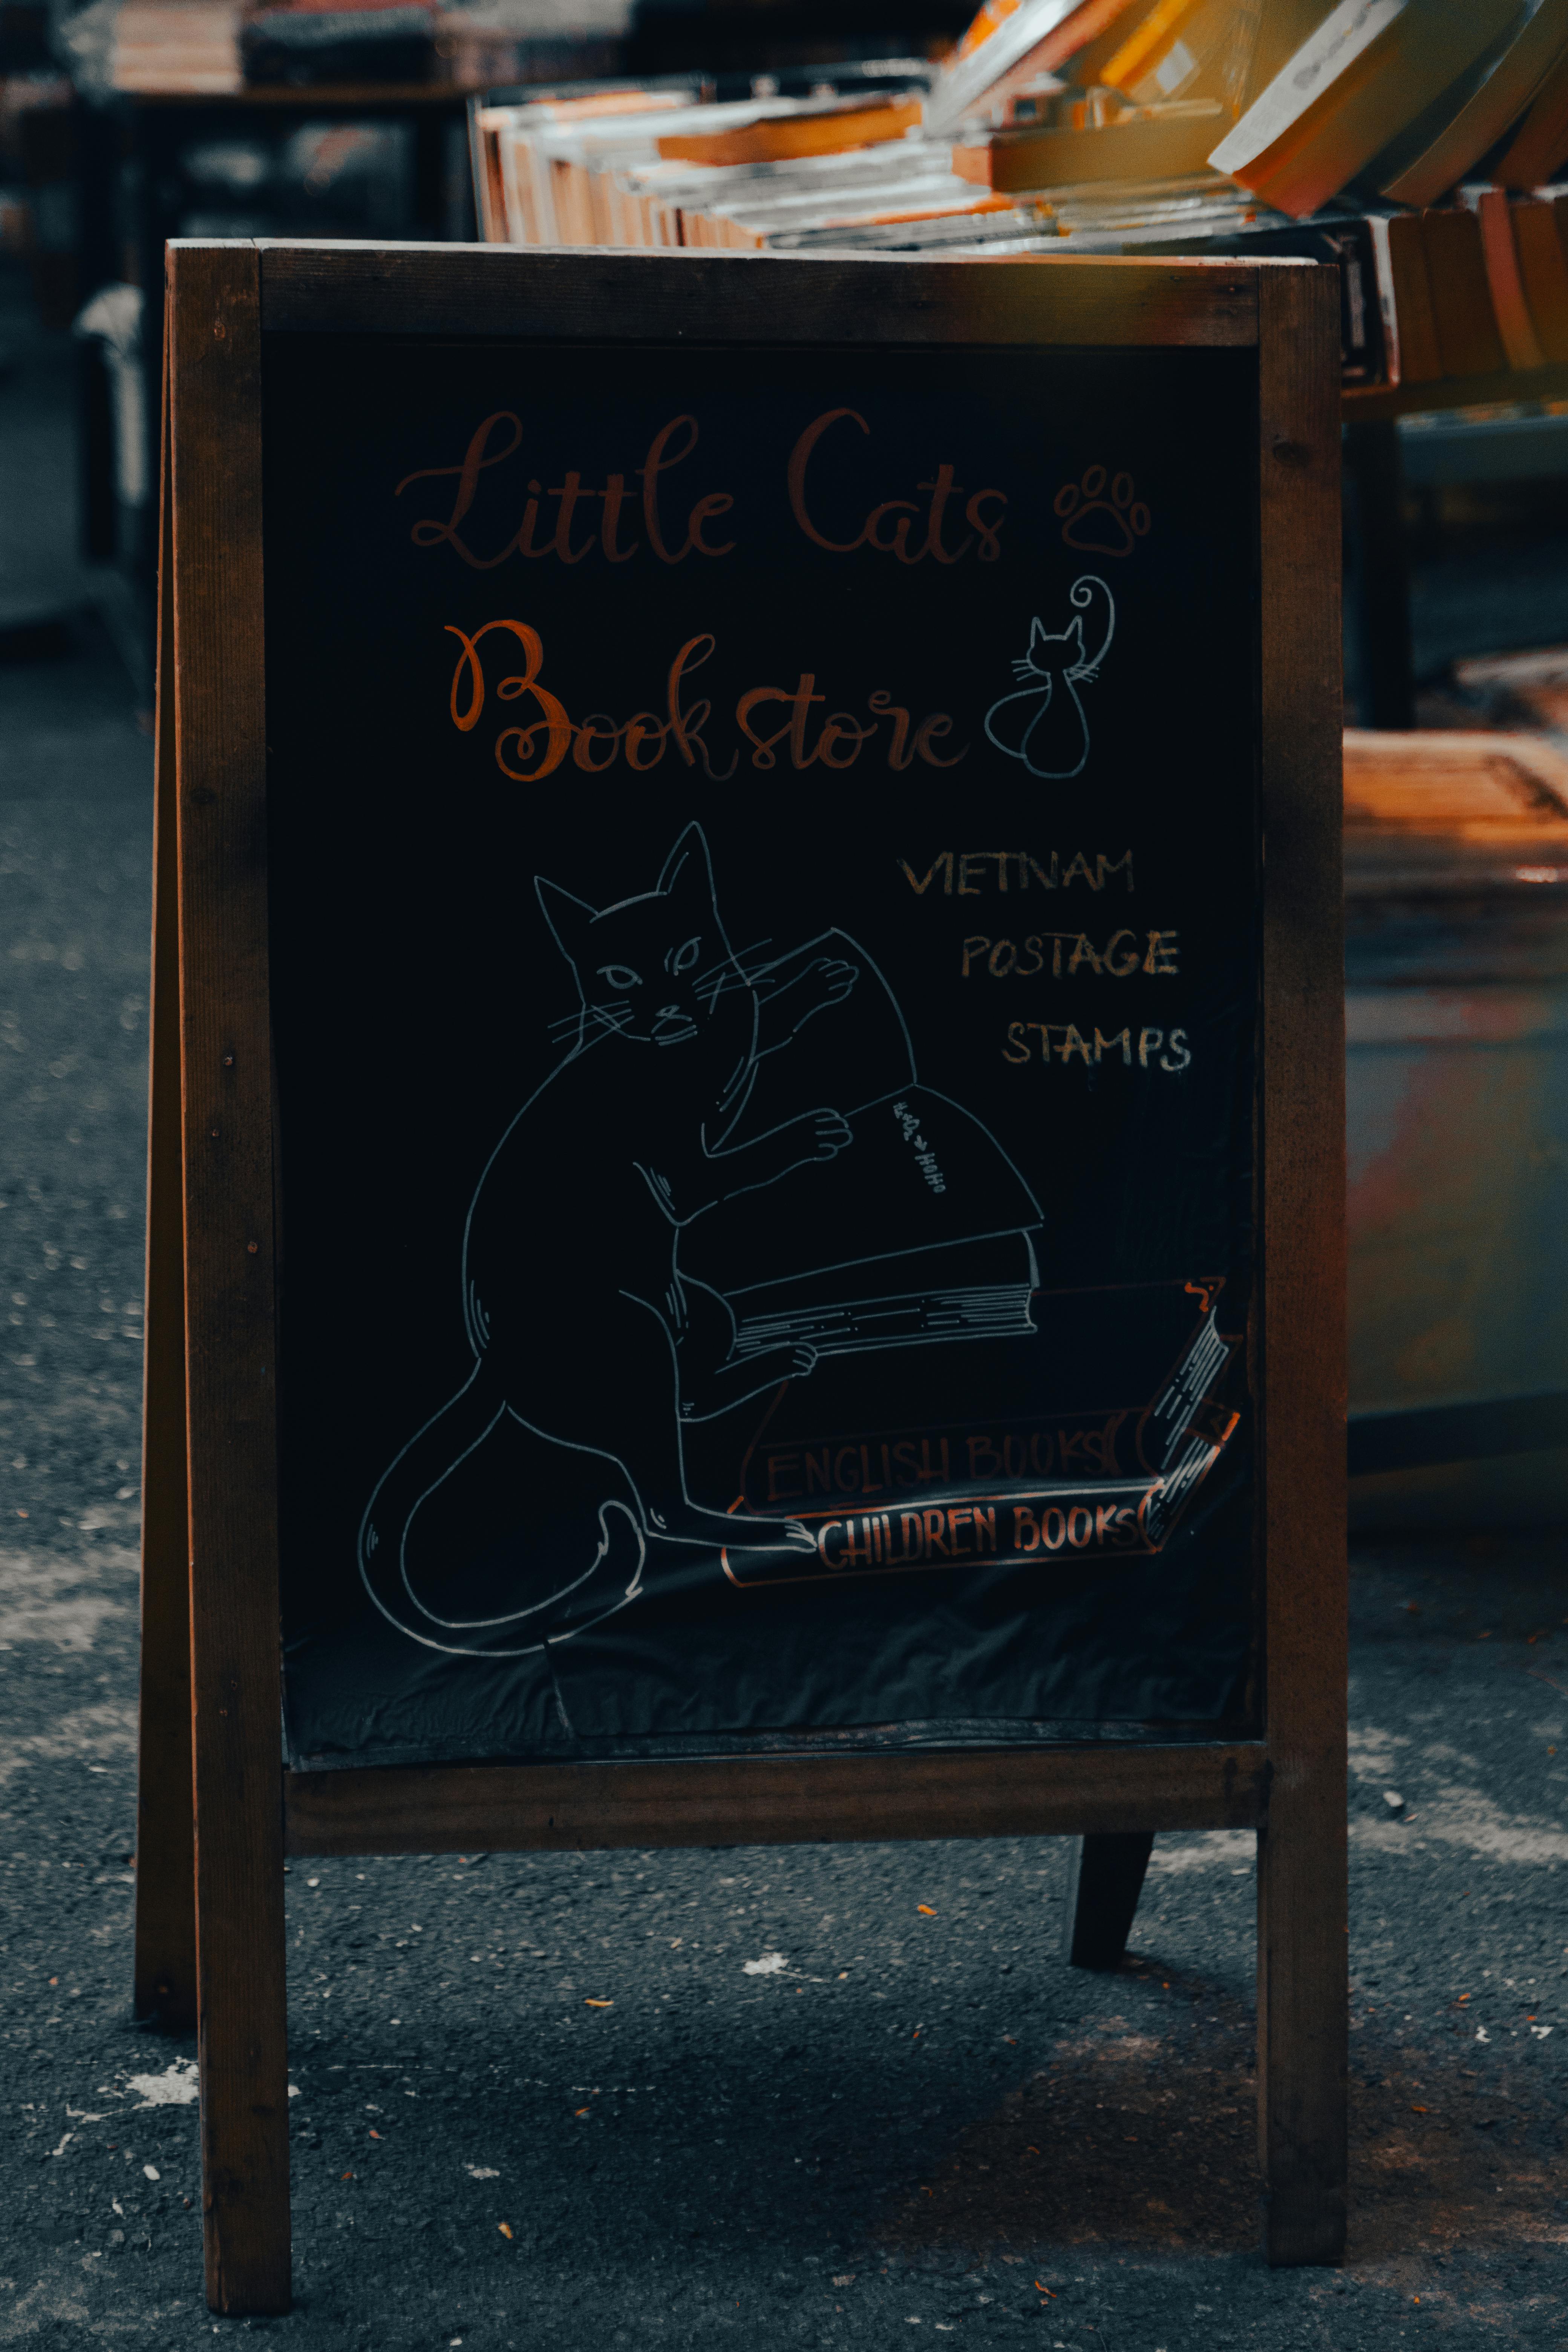 Little Cats
Bookstore
VIETNAM
POSTAGE
STAMPS
H₂+O₂ → HOHO
ENGLISH BOOKS
CHILDREN BOOKS